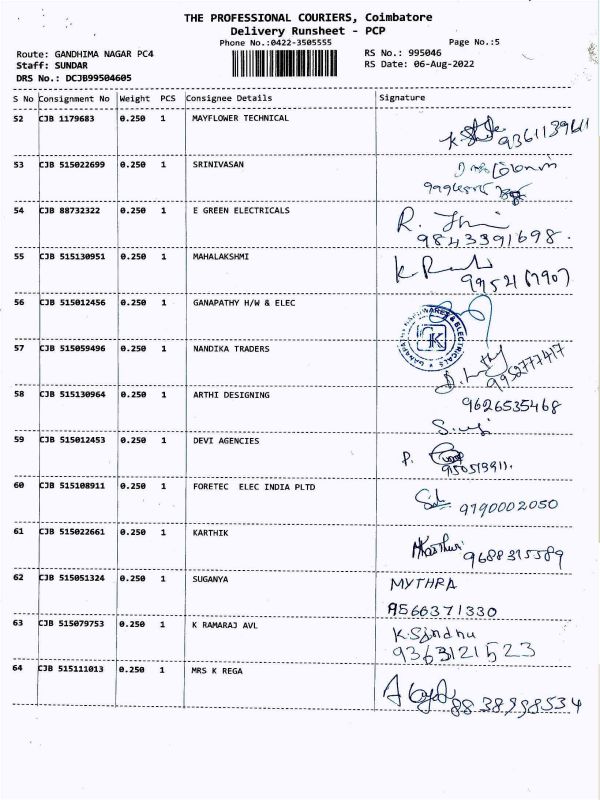 THE PROFESSIONAL COURIERS, Coimbatore
Delivery Runsheet - PCP
Phone No.:0422-3505555 Page No.:5
Route: GANDHIMA NAGAR PC4 RS No.: 995046
Staff: SUNDAR RS Date: 06-Aug-2022
DRS No.: DCJB99504605
S No Consignment No Weight PCS Consignee Details Signature
52 CJB 1179683 0.250 1 MAYFLOWER TECHNICAL
9361139611
53 CJB 515022699 0.250 1 SRINIVASAN
54 CJB 88732322 0.250 1 E GREEN ELECTRICALS
9843391698.
55 CJB 515130951 0.250 1 MAHALAKSHMI
56 CJB 515012456 0.250 1 GANAPATHY H/W & ELEC
K
57 CJB 515059496 0.250 1 NANDIKA TRADERS
9952777417
58 CJB 515130964 0.250 1 ARTHI DESIGNING
9626535468
59 CJB 515012453 0.250 1 DEVI AGENCIES
P.
60 CJB 515108911 0.250 1 FORETEC ELEC INDIA PLTD
9790002050
61 CJB 515022661 0.250 1 KARTHIK
9688315589
62 CJB 515051324 0.250 1 SUGANYA
MYTHRA
9566371330
63 CJB 515079753 0.250 1 K RAMARAJ AVL
K.Sindhu
9363121523
64 CJB 515111013 0.250 1 MRS K REGA
8838998534